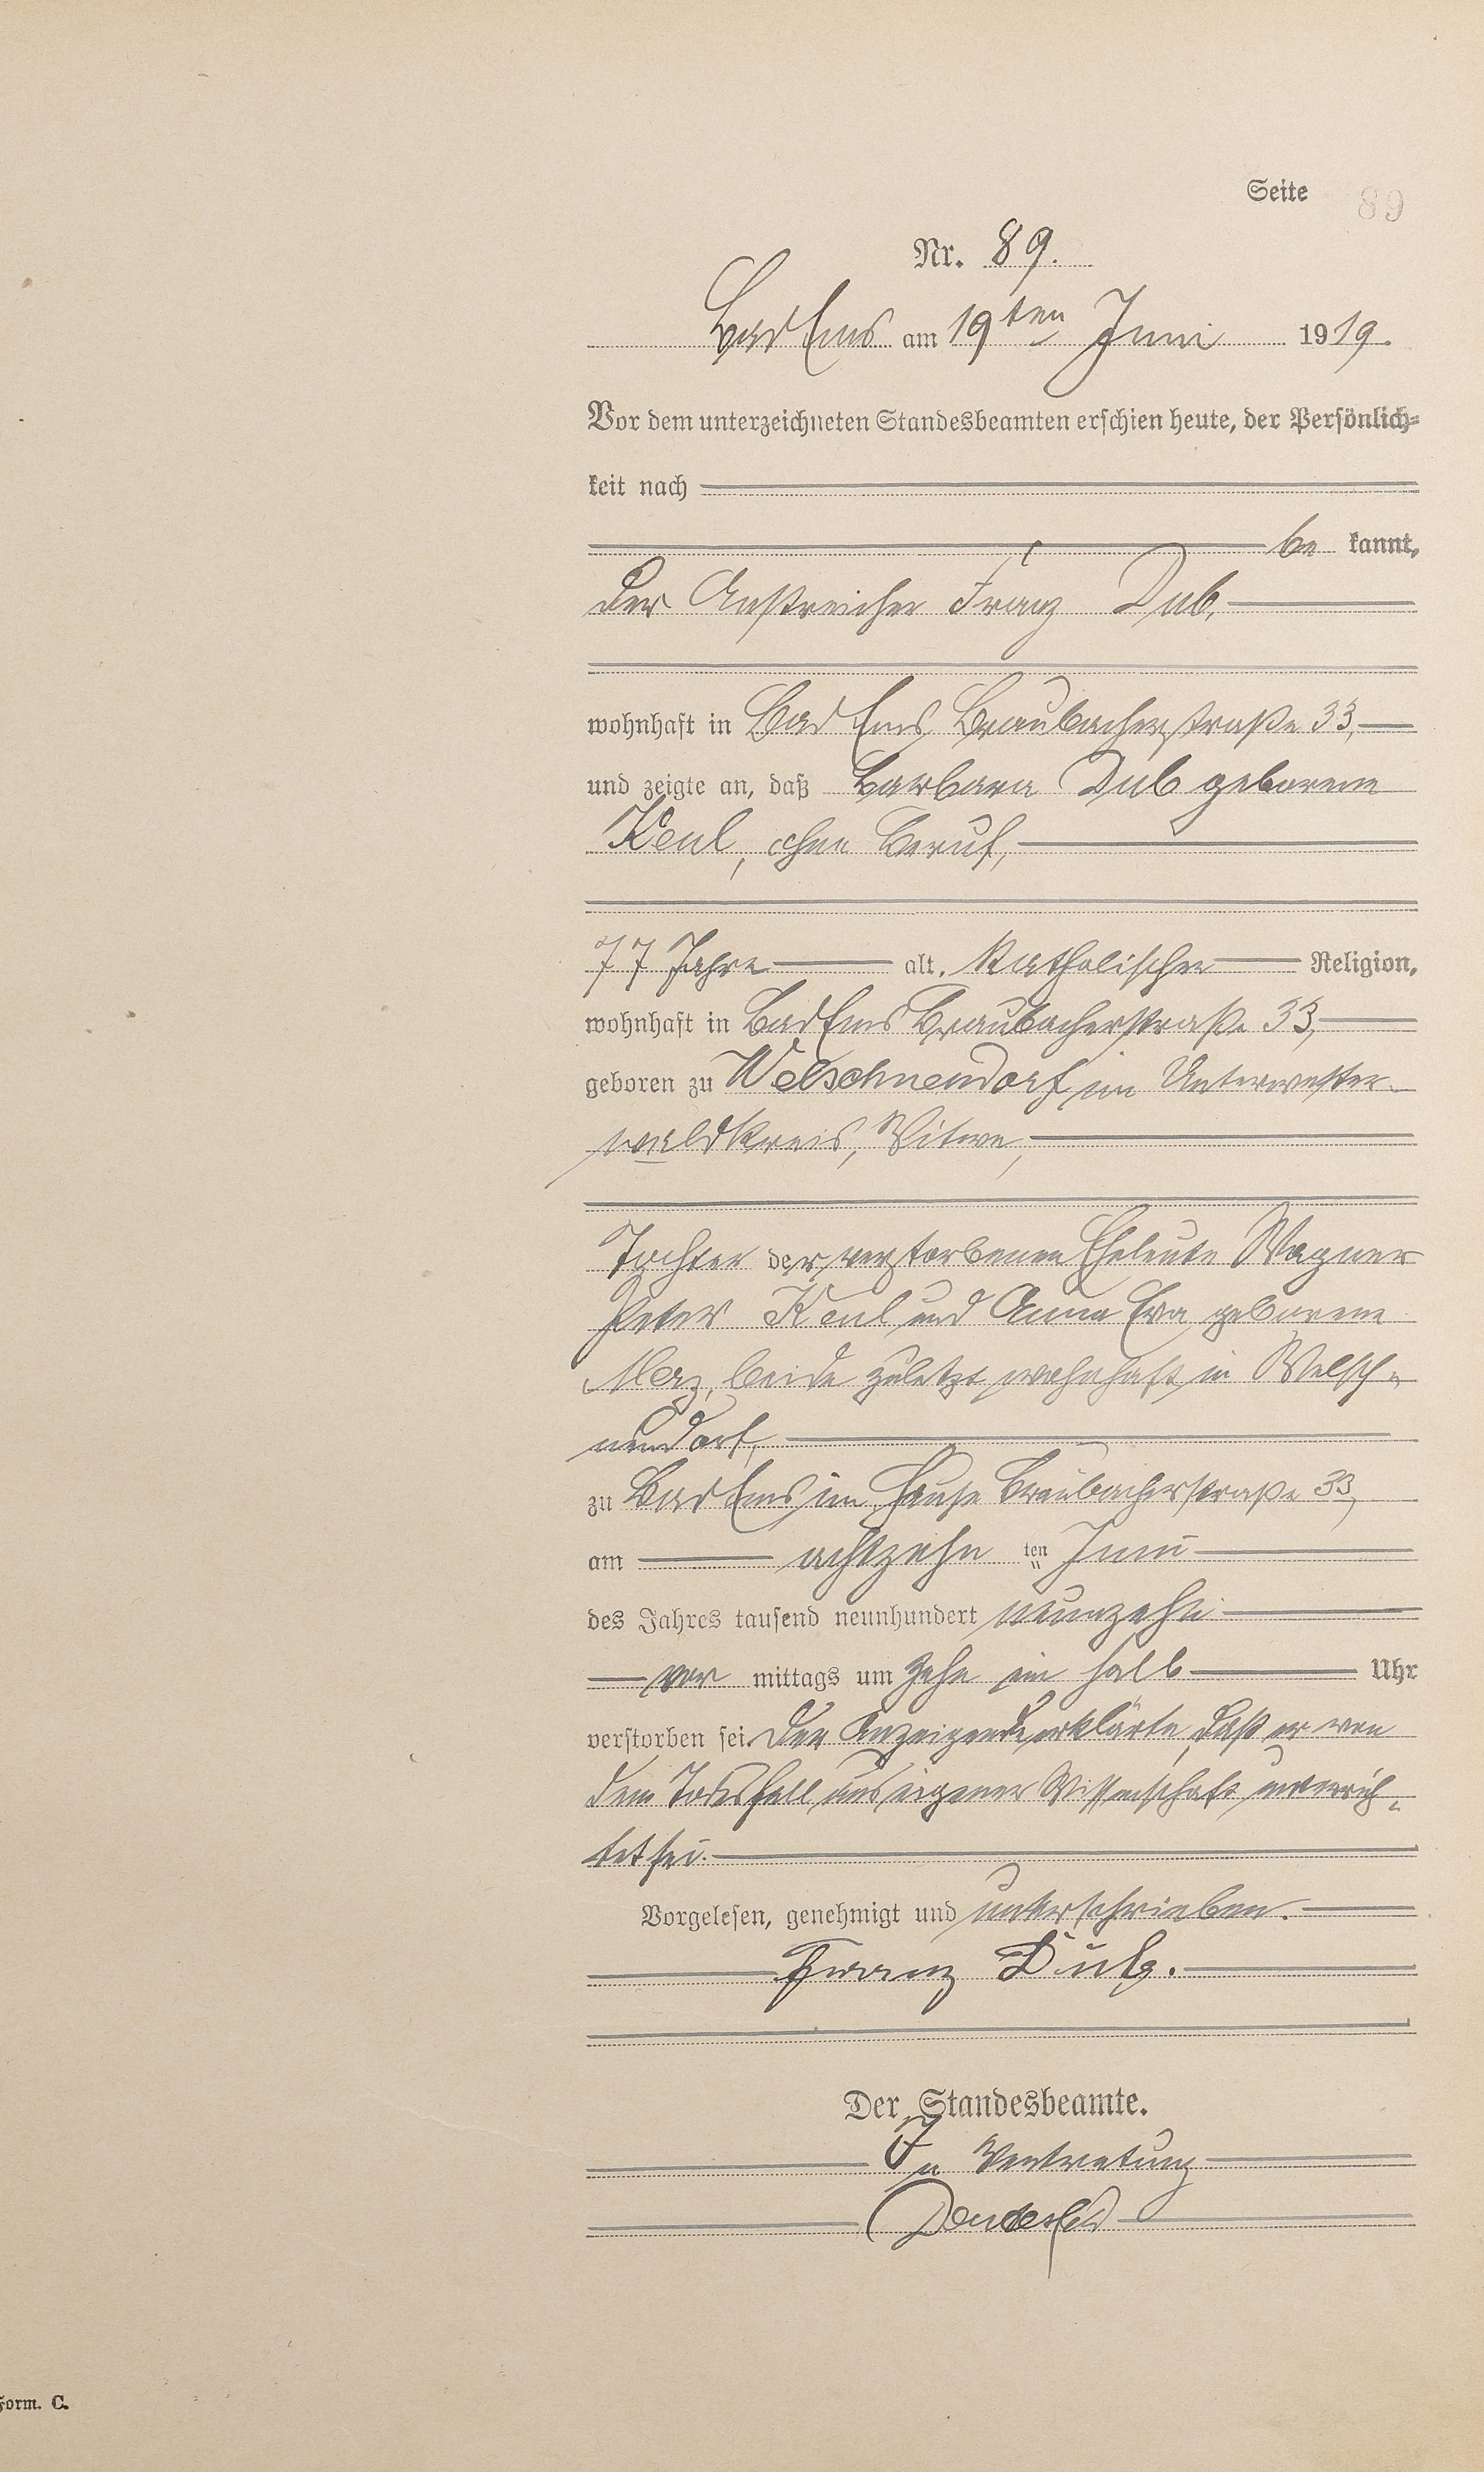 Seite 89
Nr. 89.
Bad Ems am 19ten Juni 1919.
Vor dem unterzeichneten Standesbeamten erschien heute, der Persönlich-
keit nach
be kannt,
der Anstreicher Franz Dub,
wohnhaft in Bad Ems, Braubacherstraße 33,
und zeigte an, daß Barbara Dub geborene
Keul, ohne Beruf,
77 Jahre alt, katholischer Religion,
wohnhaft in Bad Ems Braubacherstraße 33,
geboren zu Welschneudorf im Unterwester-
waldkreis, Witwe,
Tochter der verstorbenen Eheleute Wagner
Peter Keul und Anna Eva geborene
Merz, beide zuletzt wohnhaft in Welsch-
neudorf,
zu Bad Ems im Hause Braubacherstraße 33,
am achtzehn ten Juni
des Jahres tausend neunhundert neunzehn
vor mittags um zehn ein halb Uhr
verstorben sei. Der Anzeigende erklärte, daß er von
dem Todesfall aus eigener Wissenschaft unterrich-
tet sei.
Vorgelesen, genehmigt und unterschrieben.
Franz Dub.
Der Standesbeamte.
In Vertretung
Form. C.